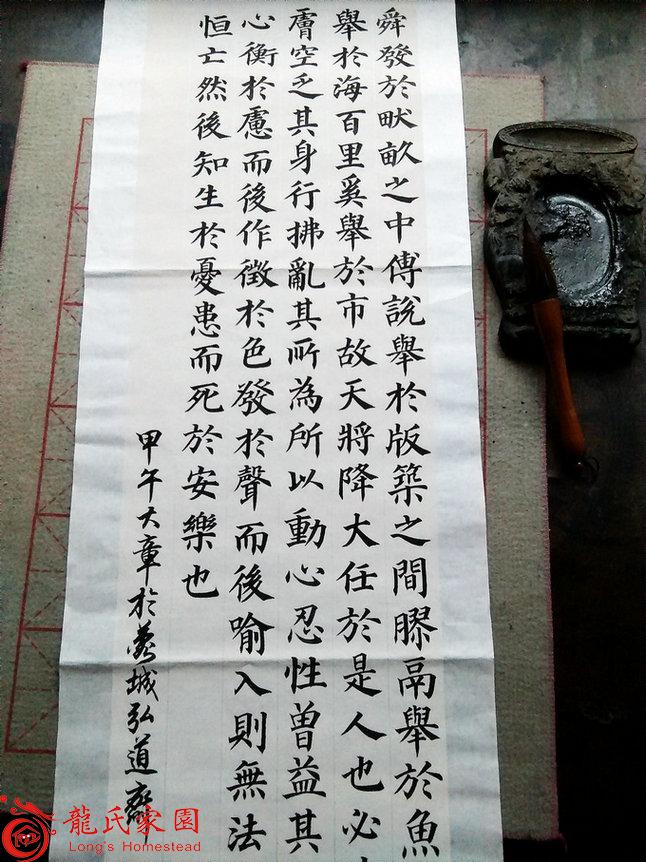 舜發於畎畝之中傅說舉於版築之間膠鬲舉於魚
舉於海百里奚舉於市故天將降大任於是人也必
膚空乏其身行拂亂其所為所以動心忍性曾益其
心衡於慮而後作徵於色發於聲而後喻入則無法
恒亡然後知生於憂患而死於安樂也
甲午大章於城弘道齋
龍氏家園
Long's Homestead